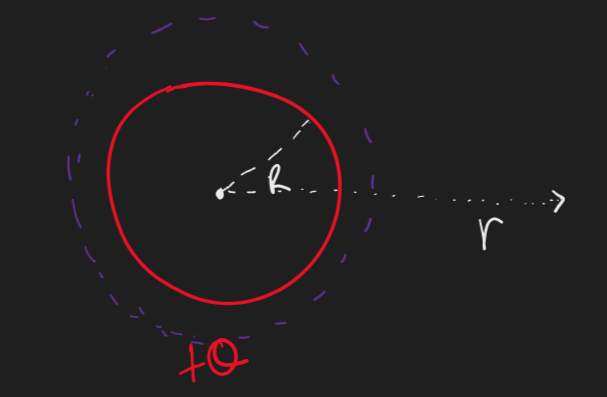 R
r
+Q